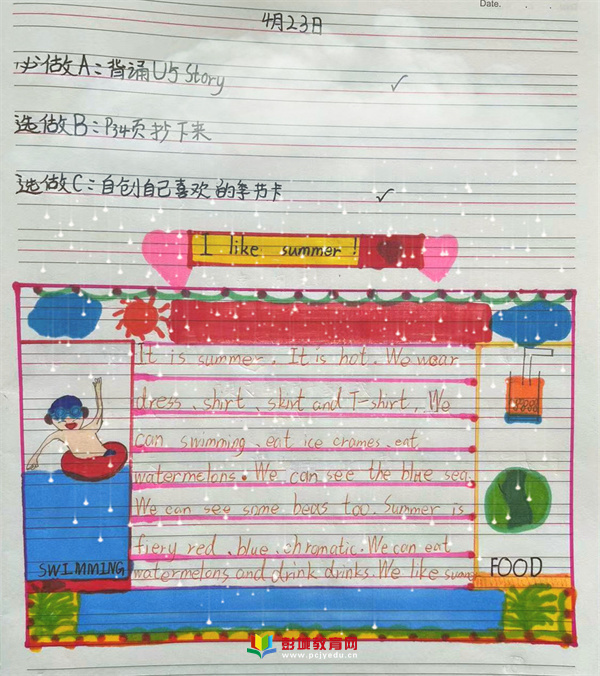 Date.
4月23日
必做A:背诵U5 Story ✓
选做B:P34页抄下来
选做C:自创自己喜欢的季节卡 ✓
I like summer!
It is summer. It is hot. We wear
dress、shirt、skirt and T-shirt. We
can swimming、eat ice crames、eat
watermelons. We can see the blue sea.
We can see some beaus too. Summer is
fiery red、blue、chromatic. We can eat
watermelons and drink drinks. We like summer
SWIMMING
FOOD
彭城教育网
www.pcjyedu.cn